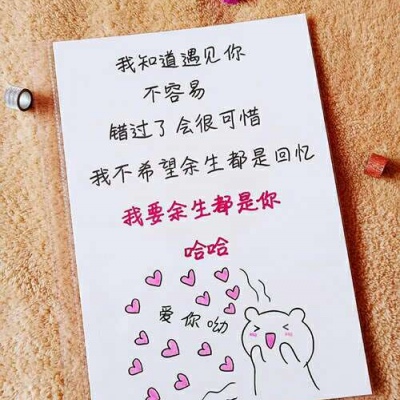 我知道遇见你
不容易
错过了会很可惜
我不希望余生都是回忆
我要余生都是你
哈哈
爱你呦